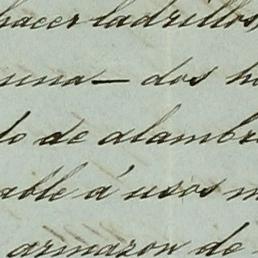 hacer ladrillos
una — dos h
do de alambre
able á usos m
armazon de